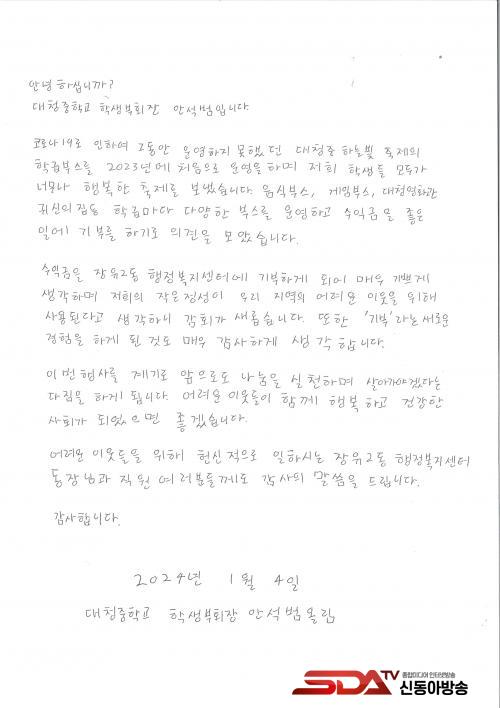 안녕 하십니까?
대청중학교 학생부회장 안석범입니다.
코로나19로 인하여 그동안 운영하지 못했던 대청중 하늘빛 축제의
학급부스를 2023년에 처음으로 운영을 하며 저희 학생들 모두가
너무나 행복한 축제를 보냈습니다. 음식부스, 게임부스, 대형영화관
귀신의집등 학급마다 다양한 부스를 운영하고 수익금을 좋은
일에 기부를 하기로 의견을 모았습니다.
수익금을 장유2동 행정복지센터에 기부하게 되어 매우 기쁘게
생각하며 저희의 작은정성이 우리 지역의 어려운 이웃을 위해
사용된다고 생각하니 감회가 새롭습니다. 또한 '기부'라는 새로운
경험을 하게 된것도 매우 감사하게 생각합니다.
이번행사를 계기로 앞으로도 나눔을 실천하며 살아가야겠다는
다짐을 하게 됩니다. 어려운 이웃들이 함께 행복하고 건강한
사회가 되었으면 좋겠습니다.
어려운 이웃들을 위해 헌신적으로 일하시는 장유2동 행정복지센터
동장님과 직원 여러분들께도 감사의 말씀을 드립니다.
감사합니다.
2024년 1월 4일
대청중학교 학생부회장 안석범올림
SDATV 종합미디어 인터넷방송
신동아방송